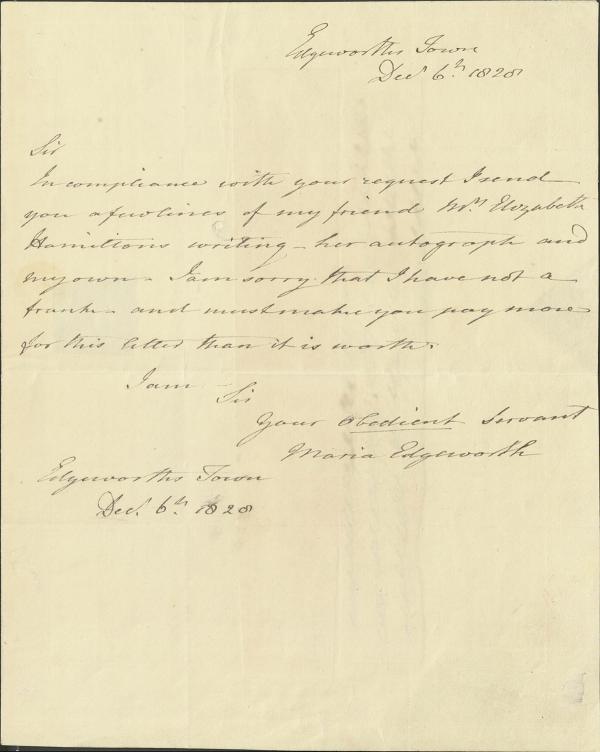 Edgeworths Town
Decr 6th. 1828
Sir
In compliance with your request I send
you a few lines of my friend Mrs Elizabeth
Hamiltons writing – her autograph and
my own – I am sorry that I have not a
frank – and must make you pay more
for this letter than it is worth.
I am –
Sir
Your obedient servant
Maria Edgeworth
Edgeworths Town
Decr. 6th. 1828